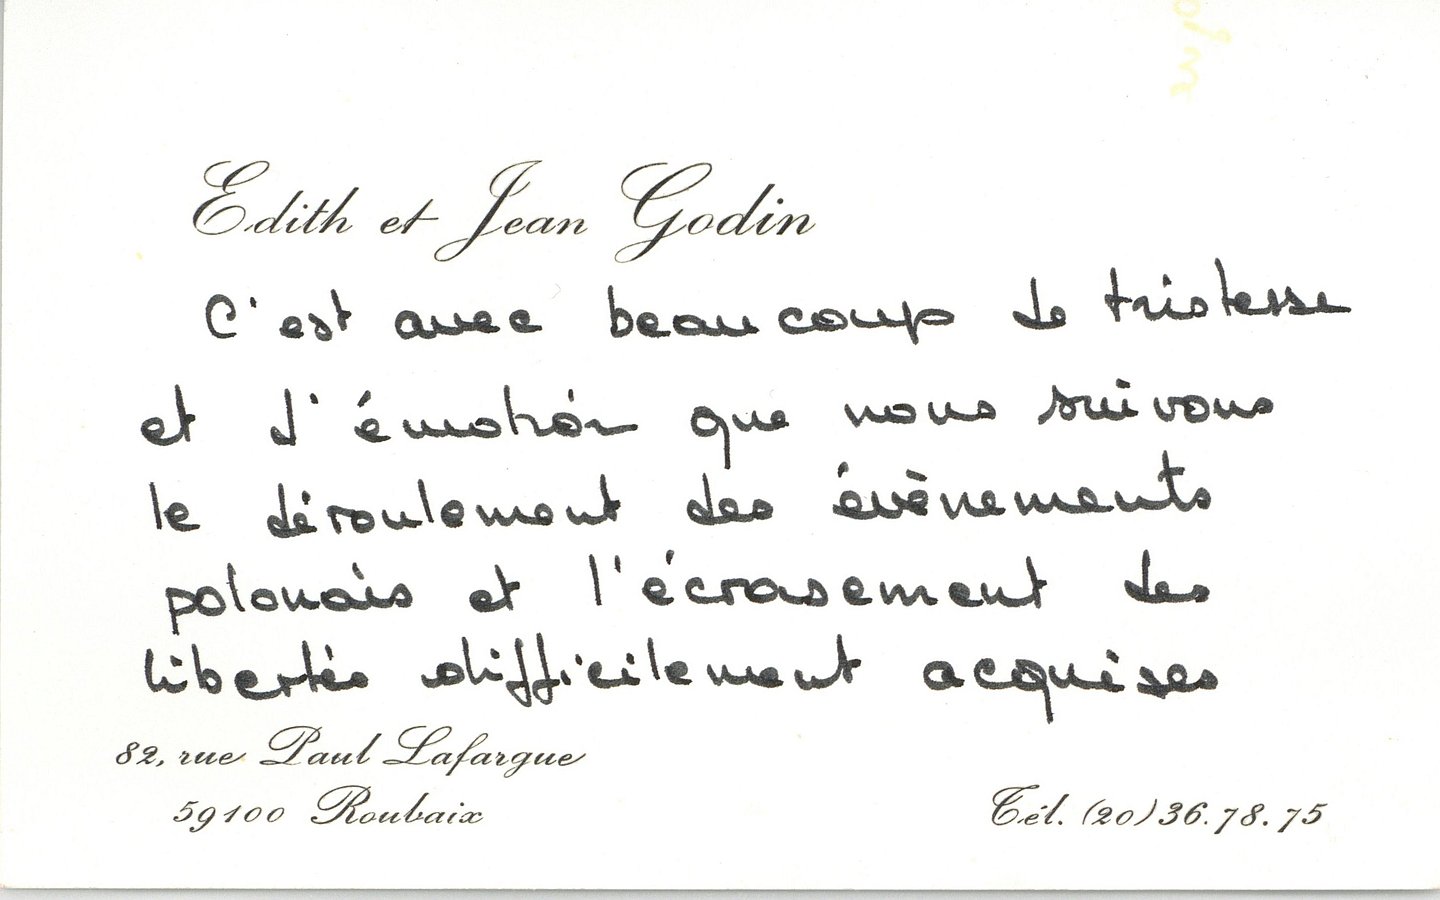 Edith et Jean Godin
C'est avec beaucoup de tristesse
et d'émotion que nous suivons
le déroulement des évènements
polonais et l'écrasement des
libertés difficilement acquises
82, rue Paul Lafargue
59100 Roubaix
Tél. (20) 36.78.75